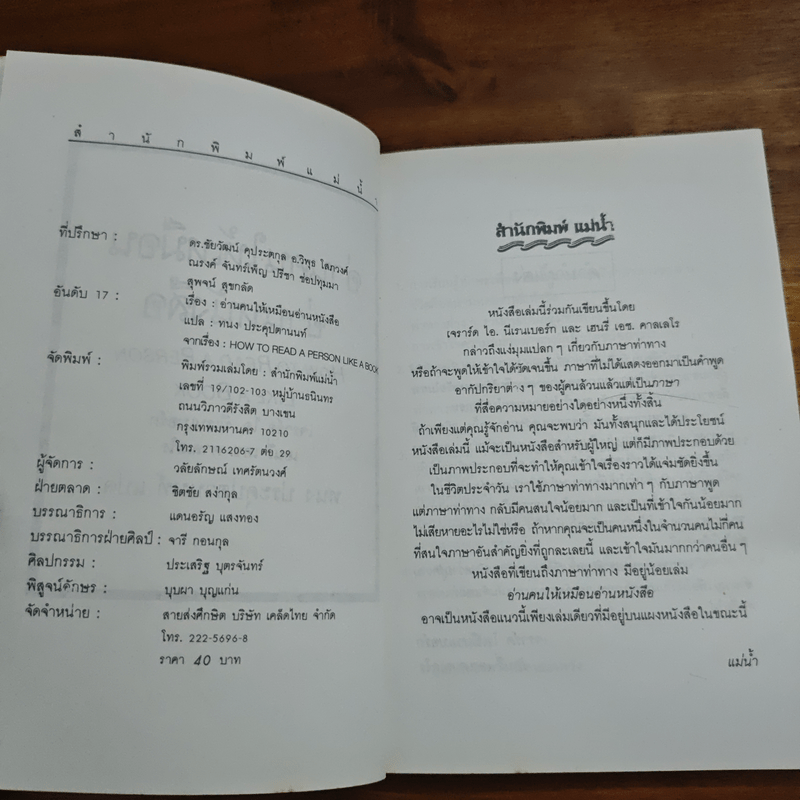 สำนักพิมพ์แม่น้ำ
ที่ปรึกษา :
ดร.ชัยวัฒน์ คุประตกุล อ.วิพุธ โสภวงศ์
ณรงค์ จันทร์เพ็ญ ปรีชา ช่อปทุมมา
สุพจน์ สุขกลัด
อันดับ 17 :
เรื่อง : อ่านคนให้เหมือนอ่านหนังสือ
แปล : ทนง ประคุปตานนท์
จากเรื่อง : HOW TO READ A PERSON LIKE A BOOK
จัดพิมพ์ :
พิมพ์รวมเล่มโดย : สำนักพิมพ์แม่น้ำ
เลขที่ 19/102-103 หมู่บ้านธนินทร
ถนนวิภาวดีรังสิต บางเขน
กรุงเทพมหานคร 10210
โทร. 2116206-7 ต่อ 29
ผู้จัดการ :
วลัยลักษณ์ เทศรัตนวงศ์
ฝ่ายตลาด :
ชิตชัย สง่ากุล
บรรณาธิการ :
แดนอรัญ แสงทอง
บรรณาธิการฝ่ายศิลป์ :
จารี กอนกุล
ศิลปกรรม :
ประเสริฐ บุตรจันทร์
พิสูจน์อักษร :
บุบผา บุญแก่น
จัดจำหน่าย :
สายส่งศึกษิต บริษัท เคล็ดไทย จำกัด
โทร. 222-5696-8
ราคา 40 บาท
สำนักพิมพ์ แม่น้ำ
หนังสือเล่มนี้ร่วมกันเขียนขึ้นโดย
เจราร์ด ไอ. นีเรนเบอร์ก และ เฮนรี่ เอช. คาลเลโร
กล่าวถึงแง่มุมแปลก ๆ เกี่ยวกับภาษาท่าทาง
หรือถ้าจะพูดให้เข้าใจได้ชัดเจนขึ้น ภาษาที่ไม่ได้แสดงออกมาเป็นคำพูด
อากัปกริยาต่าง ๆ ของผู้คนล้วนแล้วแต่เป็นภาษา
ที่สื่อความหมายอย่างใดอย่างหนึ่งทั้งสิ้น
ถ้าเพียงแต่คุณรู้จักอ่าน คุณจะพบว่า มันทั้งสนุกและได้ประโยชน์
หนังสือเล่มนี้ แม้จะเป็นหนังสือสำหรับผู้ใหญ่ แต่ก็มีภาพประกอบด้วย
เป็นภาพประกอบที่จะทำให้คุณเข้าใจเรื่องราวได้แจ่มชัดยิ่งขึ้น
ในชีวิตประจำวัน เราใช้ภาษาท่าทางมากเท่า ๆ กับภาษาพูด
แต่ภาษาท่าทาง กลับมีคนสนใจน้อยมาก และเป็นที่เข้าใจกันน้อยมาก
ไม่เสียหายอะไรไม่ใช่หรือ ถ้าหากคุณจะเป็นคนหนึ่งในจำนวนคนไม่กี่คน
ที่สนใจภาษาอันสำคัญยิ่งที่ถูกละเลยนี้ และเข้าใจมันมากกว่าคนอื่น ๆ
หนังสือที่เขียนถึงภาษาท่าทาง มีอยู่น้อยเล่ม
อ่านคนให้เหมือนอ่านหนังสือ
อาจเป็นหนังสือแนวนี้เพียงเล่มเดียวที่มีอยู่บนแผงหนังสือในขณะนี้
แม่น้ำ